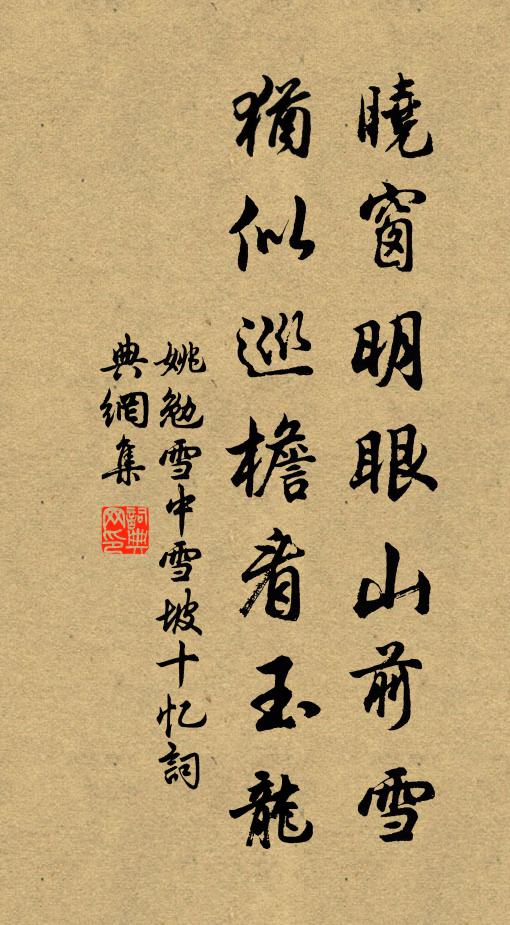 曉窗明眼山前雪
猶似巡檐看玉龍
姚勉雪中雪坡十忆詞
典網集
詞典
网印